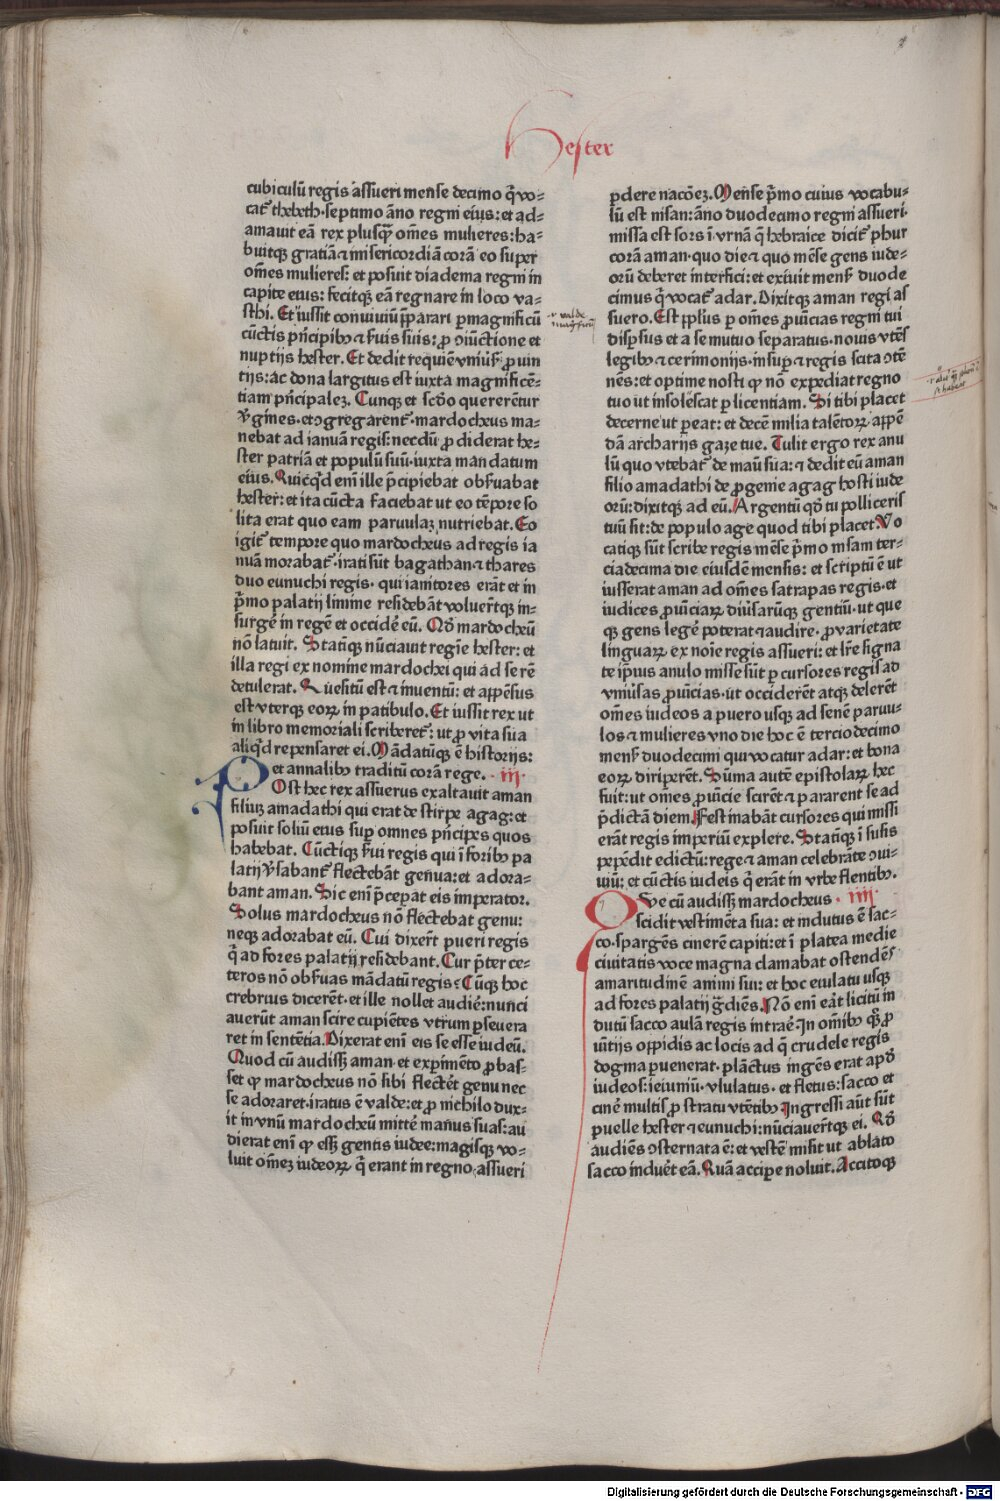 Hester
cubiculū regis assueri mense decimo q̄ vo-
cat᷑ thebeth·septimo āno regni eius: et ad-
amauit eā rex plusq̄ʒ om̄es mulieres: ha-
buitqʒ gratiā ⁊ misericordiā corā eo super
om̄es mulieres: et posuit diadema regni in
capite eius: fecitqʒ eā regnare in loco va-
sthi. Et iussit conuiuiū p̄parari ꝑmagnificū
cūctis pn̄cipibꝰ ⁊ ẜuis suis: ꝓ ↄiūctione et
nuptijs hester. Et dedit requiē vniuẜ. ꝓuin
tijs: ac dona largitus est iuxta magnificē-
tiam pn̄cipaleʒ. Cunqʒ et scd̄o quererētur
v̓gines·et ↄgregarent᷑·mardocheus ma-
nebat ad ianuā regis: necdū ꝓdiderat he-
ster patriā et populū suū·iuxta mandatum
eius. Quicq̇d eni̅ ille p̄cipiebat obẜuabat
hester: et ita cūcta faciebat ut eo tēpore so
lita erat quo eam paruulaʒ nutriebat. Eo
igit᷑ tempore quo mardocheus ad regis ia
nuā morabat᷑·irati sūt bagathan ⁊ thares
duo eunuchi regis· qui ianitores erāt et in
p̄mo palatij limine residebāt voluer̄tqʒ in-
surgē in regē et occidē eū. Qd̓ mardocheū
nō latuit. Statīqʒ nūciauit regie hester: et
illa regi ex nomine mardochei qui ad se rē
detulerat. Quesitū est ⁊ inuentū: et appēsus
est vterque eoꝝ in patibulo. Et iussit rex ut
in libro memoriali scriberet᷑: ut ꝓ vita sua
aliq̇d repensaret ei. Mādatūqʒ ē historijs:
et annalibꝰ traditū corā rege. ·iij·
POst hec rex assuerus exaltauit aman
filiuʒ amadathi qui erat de stirpe agag: et
posuit soliū eius suꝑ omnes pn̄cipes quos
habebat. Cūctiqʒ ẜui regis qui ī foribꝰ pa
latij v̓sabant᷑ flectebāt genua: et adora-
bant aman. Sic eni̅ p̄cepat eis imperator.
Solus mardocheus nō flectebat genu:
neqʒ adorabat eū. Cui dixer̄t pueri regis
q̄ ad fores palatij residebant. Cur p̄ter ce-
teros nō obẜuas mādatū regis? Cūqʒ hoc
crebrius dicerēt·et ille nollet audiē: nunci
auerūt aman scire cupiētes vtrum ꝑseuera
ret in sentētia. Dixerat eni̅ eis se esse iudeū.
Quod cū audissʒ aman·et exꝑimēto ꝓbas-
set qꝫ mardocheus nō sibi flectēt genu nec
se adoraret·iratus ē valde: et ꝓ nichilo dux-
it in vnū mardocheū mittē manus suas: au
dierat eni̅ qꝫ essʒ gentis iudee: magisqʒ vo-
luit om̄eʒ iudeoꝝ q̄ erant in regno assueri
ꝑdere nacōeʒ. Mense p̄mo cuius vocabu-
lū est nisan: āno duodecimo regni assueri·
missa est sors ī vrnā q̄ hebraice dicit᷑ phur
corā aman·quo die ⁊ quo mēse gens iude-
orū deberet interfici: et exiuit menẜ duode
cimus q̄ vocat᷑ adar. Dixitqʒ aman regi as
suero. Est ppl̓us ꝑ om̄es ꝓuīcias regni tui
disꝑsus et a se mutuo separatus·nouis vtēs
legibꝰ ⁊ cerimonijs·insuꝑ ⁊ regis scita ↄtē
nēs: et optime nosti qꝫ nō expediat regno
tuo ut insolescat ꝑ licentiam. Si tibi placet
decerne ut ꝑeat: et decē milia talētoꝝ appē
dā archarijs gaze tue. Tulit ergo rex anu
lū quo vtebat᷑ de manu sua: ⁊ dedit eū aman
filio amadathi de ꝓgenie agag hosti iude
orū: dixitqʒ ad eū. Argentū qd̓ tu polliceris
tuū sit: de populo age quod tibi placet. Vo
catiqʒ sūt scribe regis mēse p̄mo nisam ter-
ciadecima die eiusdē mensis: et scriptū ē ut
iusserat aman ad om̄es satrapas regis·et
iudices ꝓuīciaꝝ diuẜarūqʒ gentiū·ut que
qʒ gens legē poterat ⁊ audire·ꝓ varietate
linguaꝝ ex noīe regis assueri: et lr̄e signa
te ip̄ius anulo misse sūt ꝑ cursores regis ad
vniuẜas ꝓuīcias·ut occiderēt atqʒ delerēt
om̄es iudeos a puero usqʒ ad senē paruu-
los ⁊ mulieres vno die hoc ē terciodecimo
menẜ duodecimi qui vocatur adar: et bona
eoꝝ diriperēt. Sūma autē epistolaꝝ hec
fuit: ut om̄es ꝓuīcie scirēt ⁊ pararent se ad
p̄dictā diem. Festinabāt cursores qui missi
erāt regis imperiū explere. Statīqʒ ī susis
pepēdit edictū: rege ⁊ aman celebrāte ↄui-
uiū: et cūctis iudeis q̄ erāt in vrbe flentibꝰ.
QVe cū audissʒ mardocheus ·iiij·
scidit vestimēta sua: et indutus ē sac-
co·spargēs cinerē capiti: et ī platea medie
ciuitatis voce magna clamabat ostendēs
amaritudinē animi sui: et hoc eiulatu usqʒ
ad fores palatij g̓diēs. Nō eni̅ eāt licitū in
dutū sacco aulā regis intrāe. In om̄ibꝰ qʒ ꝓ
uītijs oppidis ac locis ad q̄ crudele regis
dogma ꝑuenerat· plāctus ingēs erat apd̓
iudeos: ieiuniū· vlulatus· et fletus: sacco et
cinē multis ꝓ stratu vtētibꝰ. Ingressi aūt sūt
puelle hester ⁊ eunuchi: nūciauer̄tqʒ ei. Qd̓
audiēs ↄsternata ē: et vestē misit ut ablato
sacco induēt eā. Quā accipe noluit. Accitoqʒ
Digitalisierung gefördert durch die Deutsche Forschungsgemeinschaft - DFG